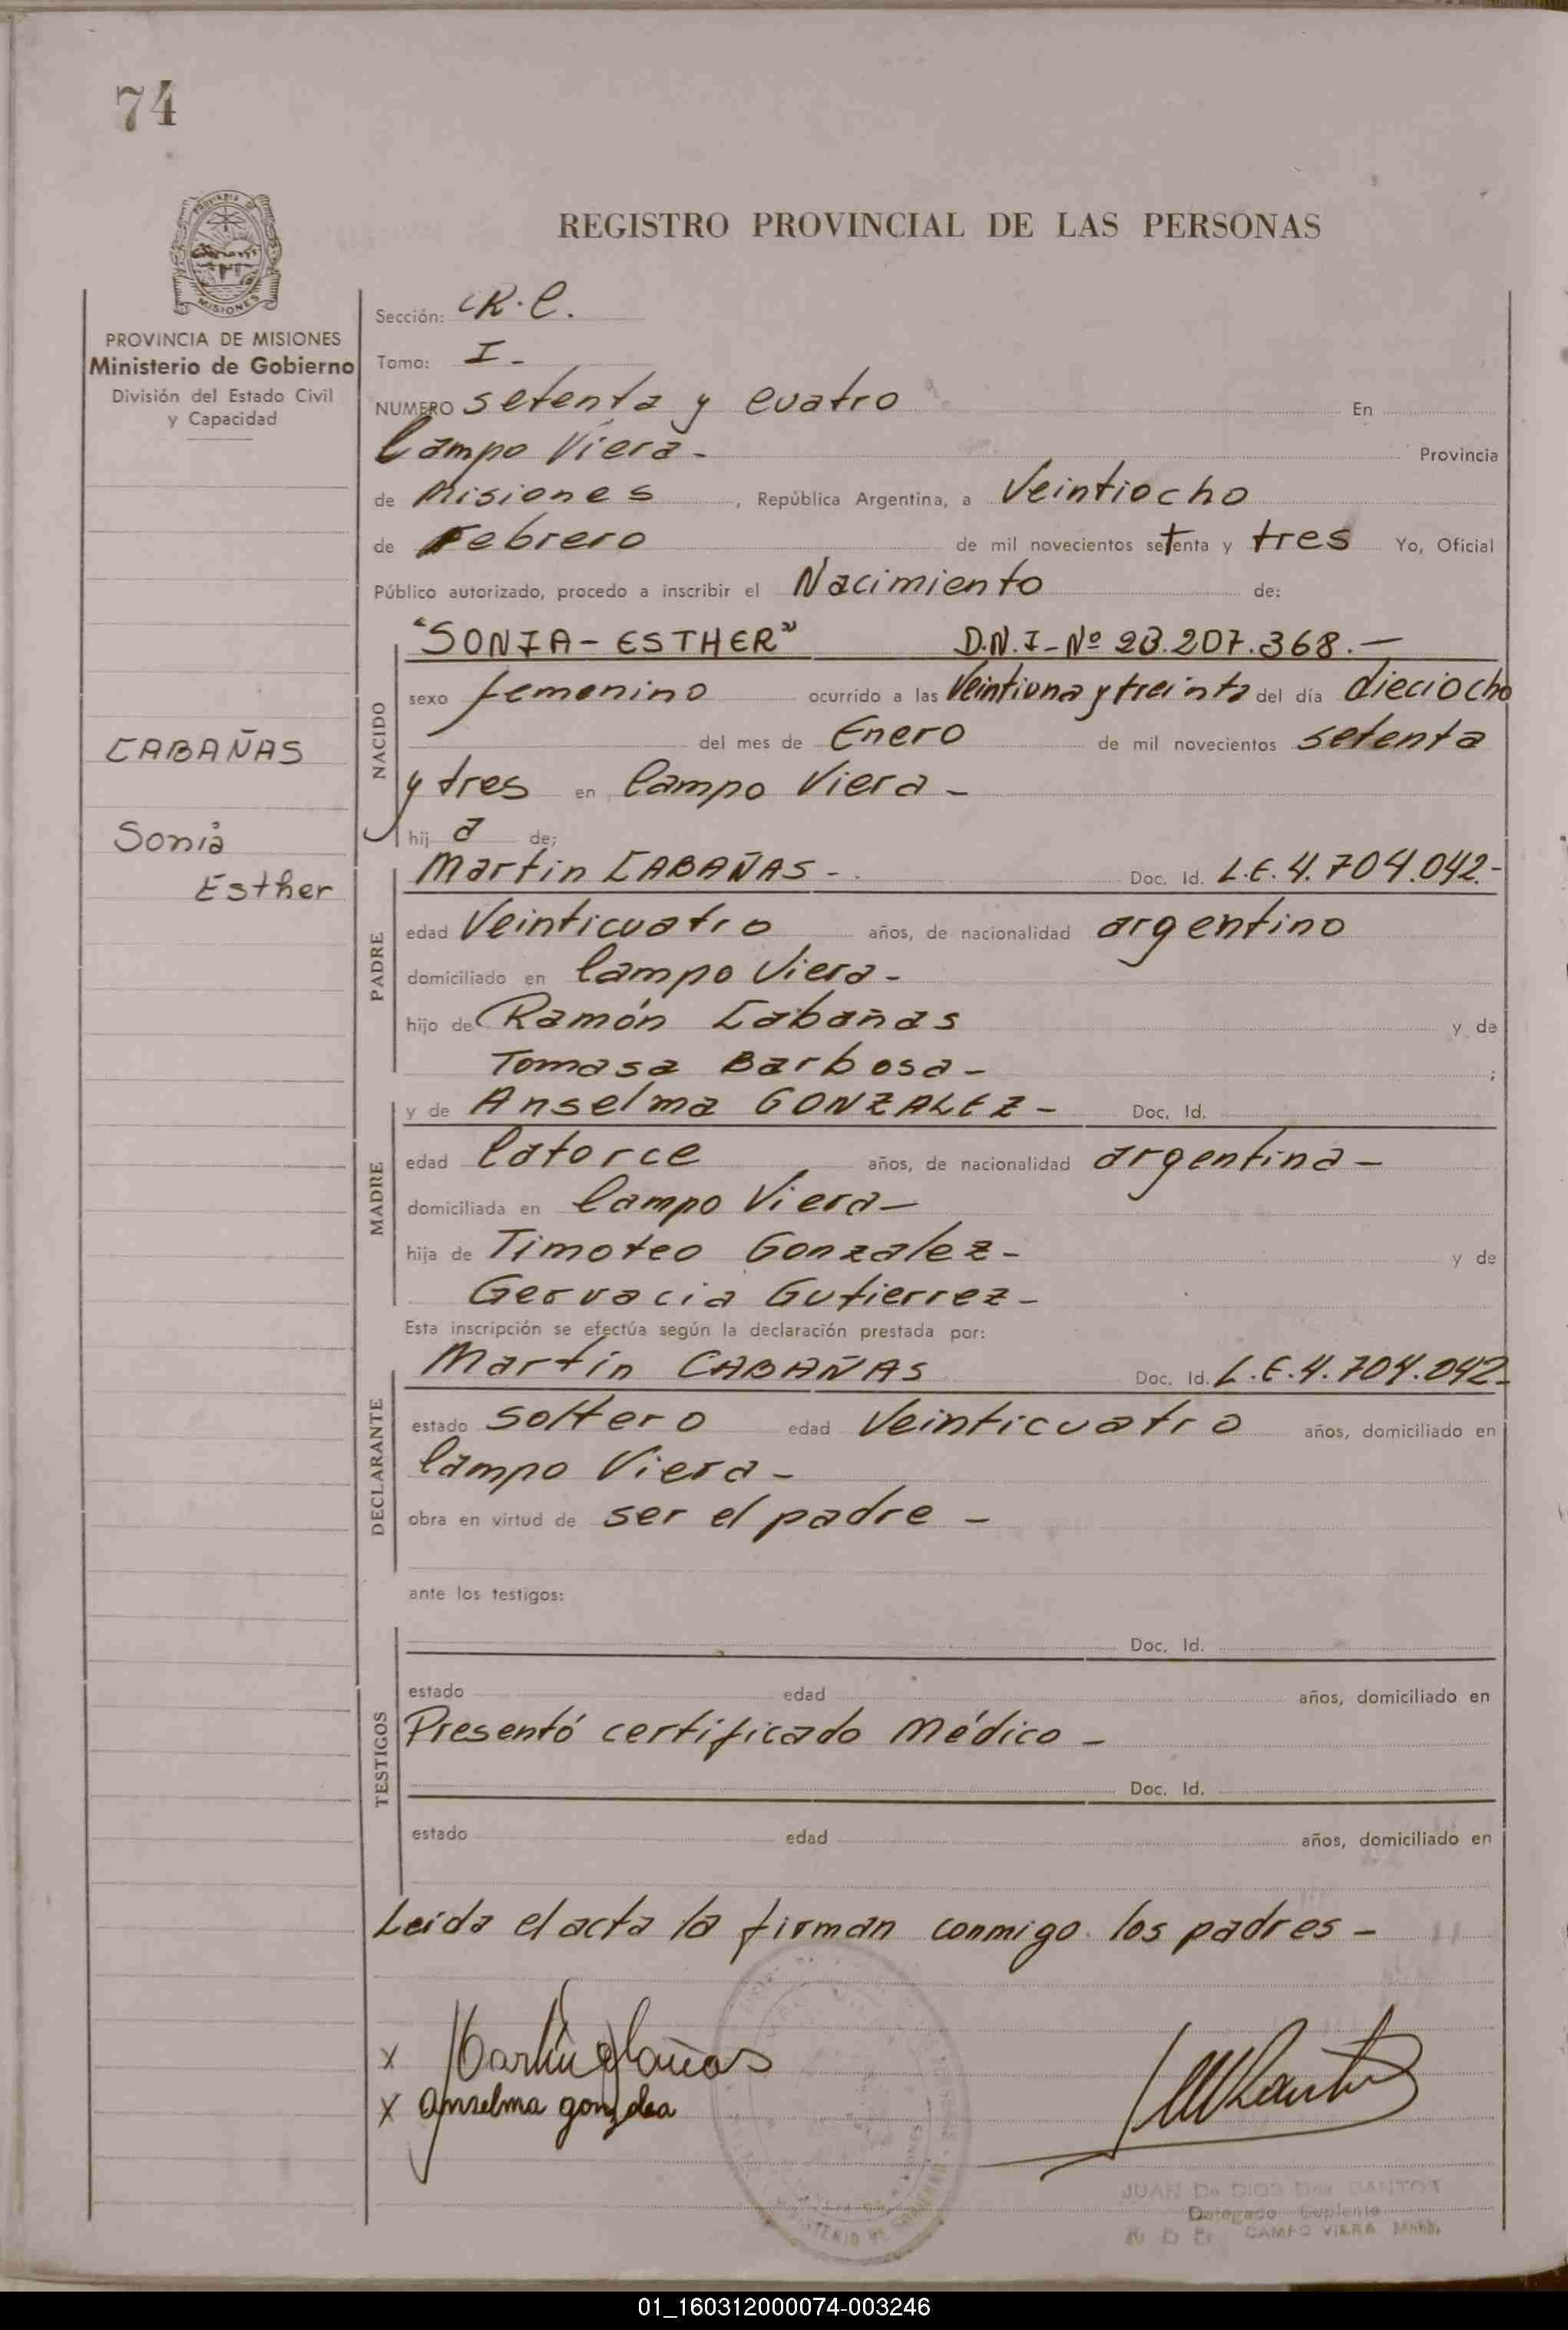 74
REGISTRO PROVINCIAL DE LAS PERSONAS
PROVINCIA DE MISIONES
Ministerio de Gobierno
División del Estado Civil
y Capacidad
CABAÑAS
Sonia
Esther
Sección: R.C.
Tomo: I -
NUMERO setenta y cuatro En
Campo Viera - Provincia
de Misiones, República Argentina, a Veintiocho
de Febrero de mil novecientos setenta y tres Yo, Oficial
Público autorizado, procedo a inscribir el Nacimiento de:
NACIDO
"SONIA - ESTHER" D.N.I - Nº 23.207.368. -
sexo femenino ocurrido a las Veintiuna y treinta del día dieciocho
del mes de Enero de mil novecientos setenta
y tres en Campo Viera -
hij a de:
PADRE
Martin CABAÑAS - . Doc. Id. L.E. 4.704.042.-
edad Veinticuatro años, de nacionalidad argentino
domiciliado en Campo Viera -
hijo de Ramón Cabañas y de
Tomasa Barbosa - ;
MADRE
y de Anselma GONZALEZ - Doc. Id.
edad Catorce años, de nacionalidad argentina -
domiciliada en Campo Viera -
hija de Timoteo Gonzalez - y de
Gervacia Gutierrez -
Esta inscripción se efectúa según la declaración prestada por:
DECLARANTE
Martin CABAÑAS Doc. Id. L.E. 4.704.042-
estado soltero edad Veinticuatro años, domiciliado en
Campo Viera -
obra en virtud de ser el padre -
ante los testigos:
TESTIGOS
Doc. Id.
estado edad años, domiciliado en
Presentó certificado Médico -
Doc. Id.
estado edad años, domiciliado en
Leida el acta la firman conmigo los padres -
x Martin Cabañas
x Anselma gonzalea
JUAN De DIOS Dos SANTOS
Delegado Suplente
CAMPO VIERA
01_160312000074-003246